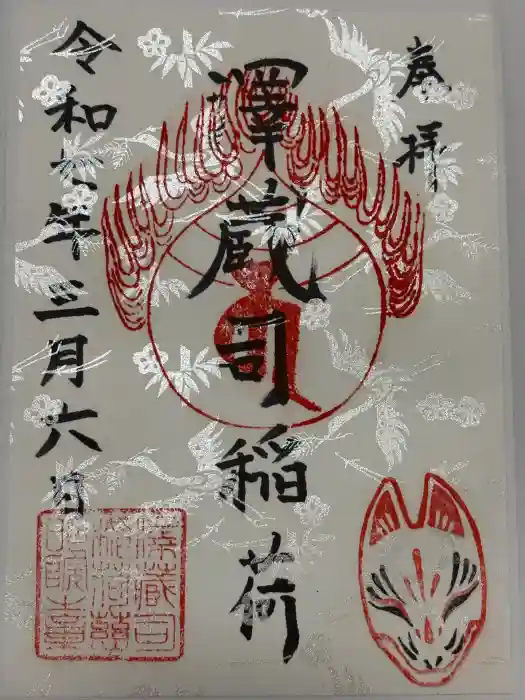 奉拝
澤蔵司稲荷
令和六年三月六日